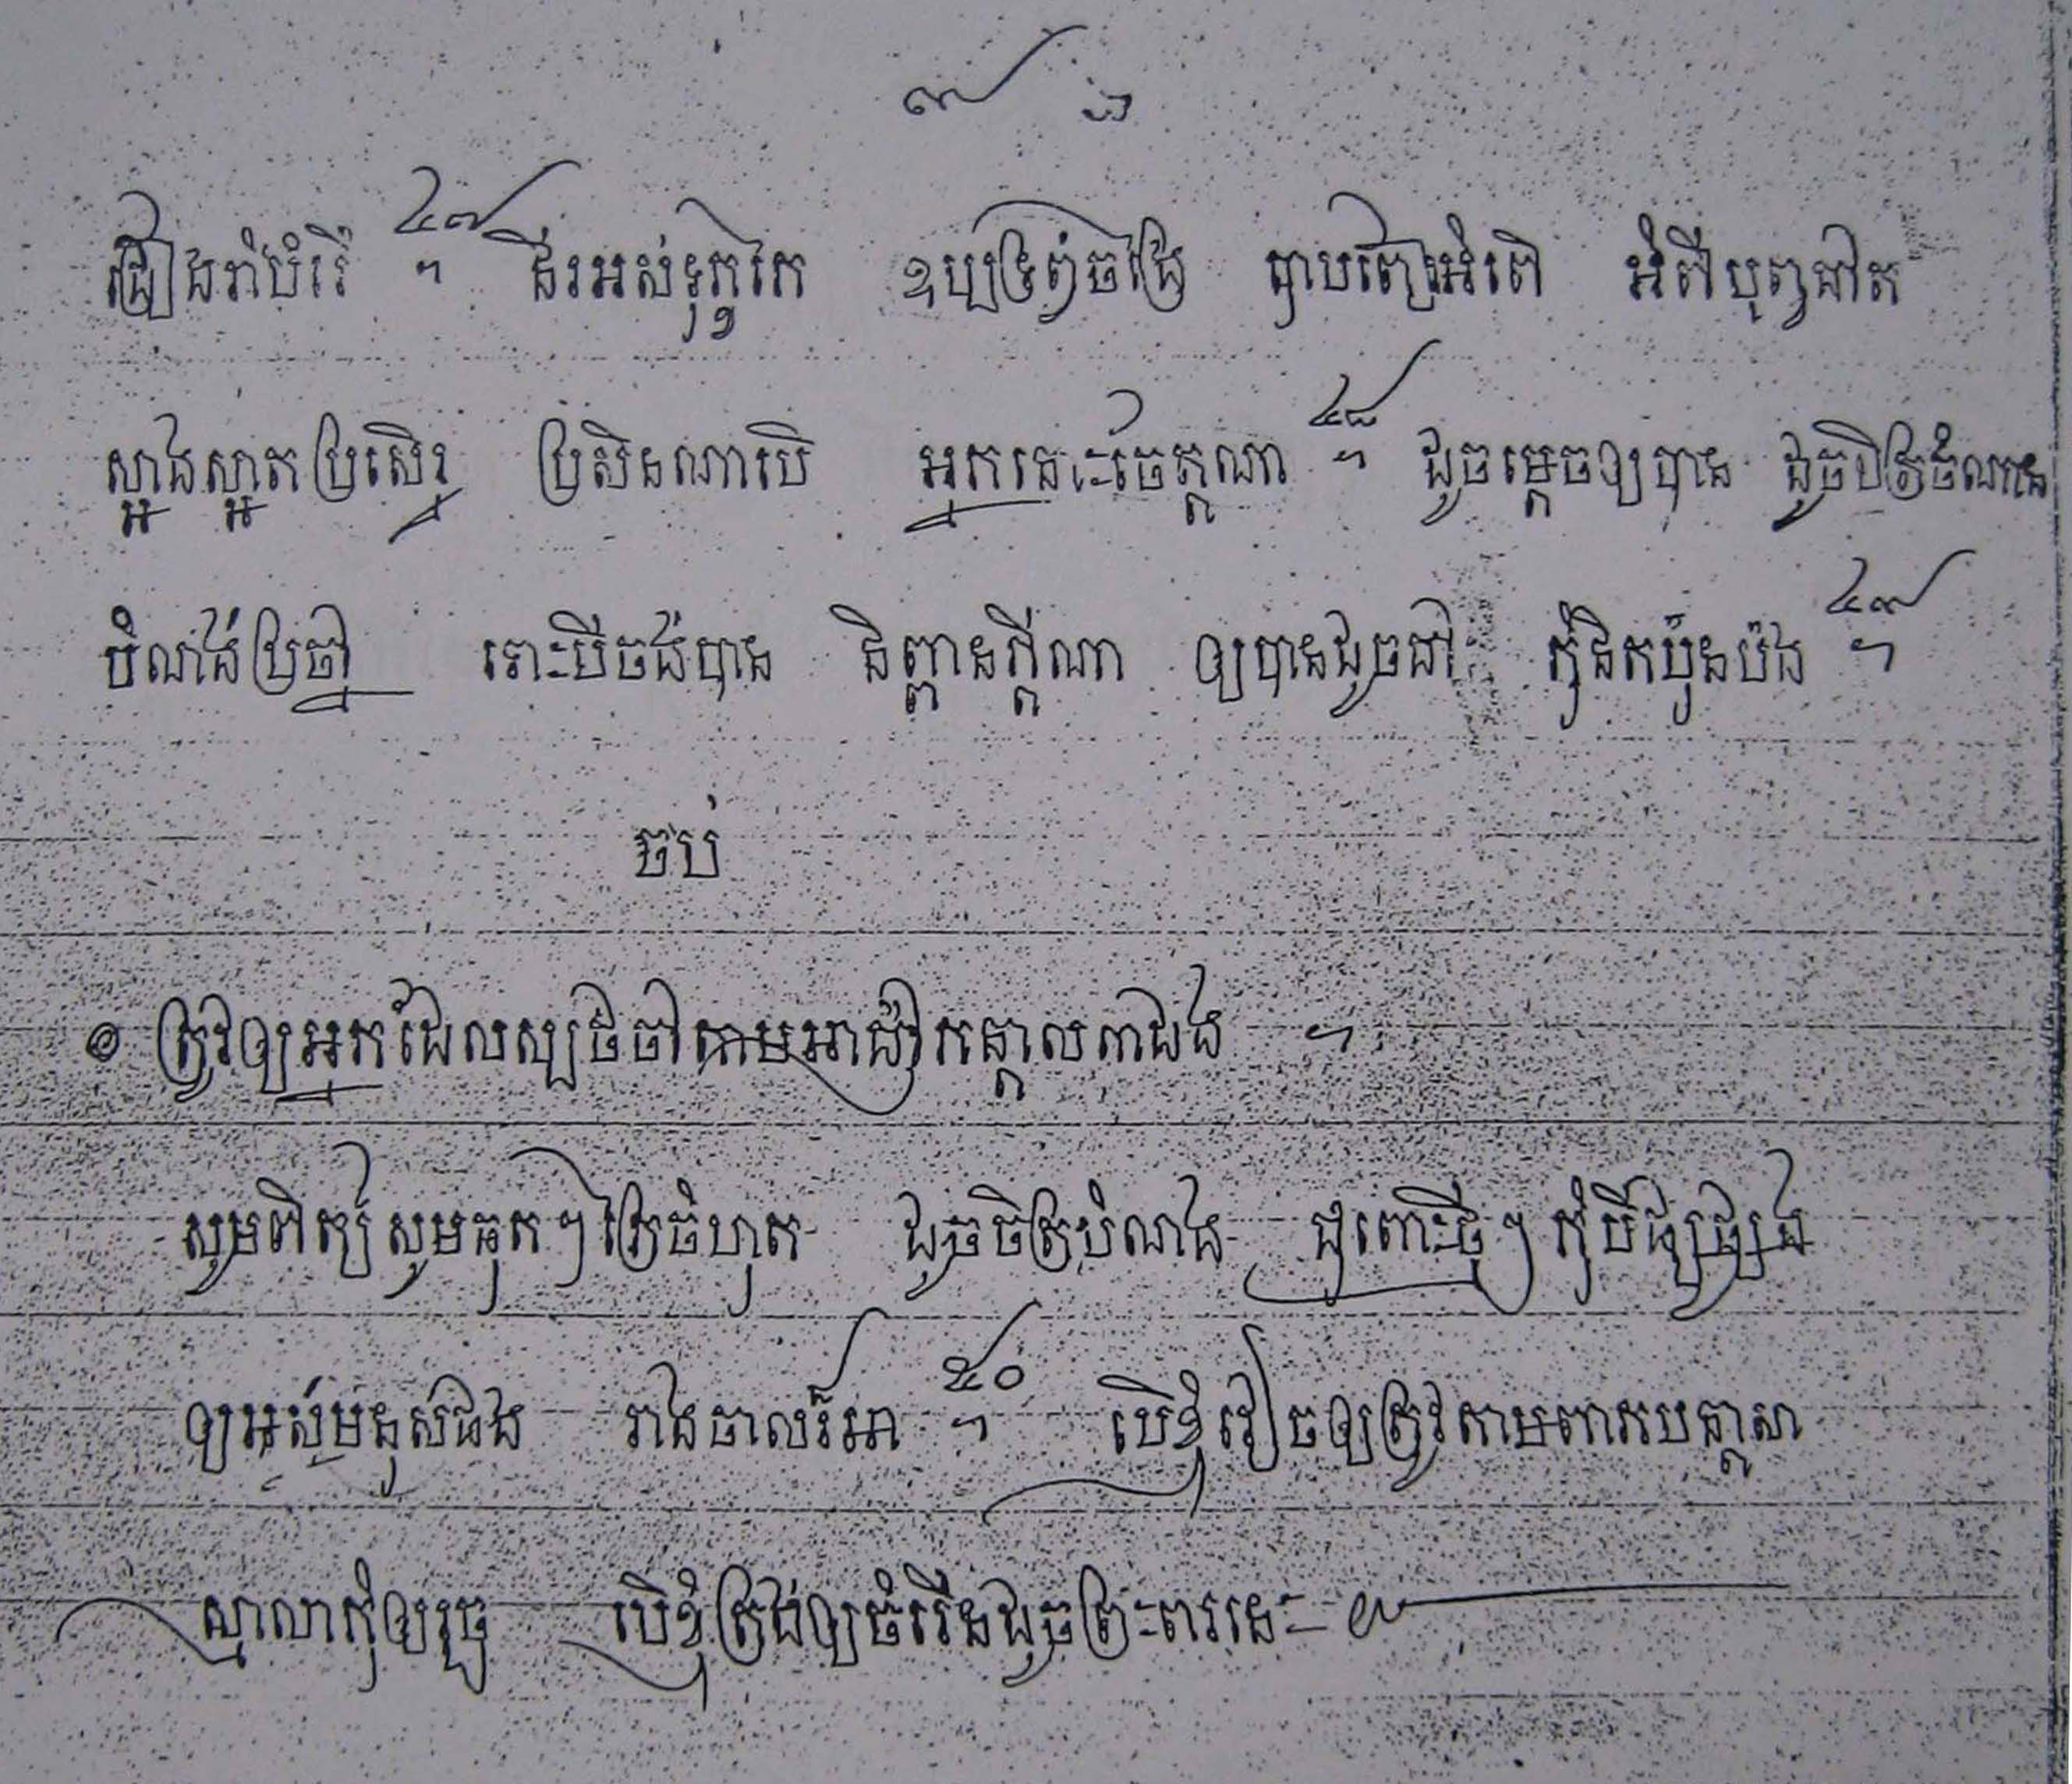 ៧ ៦
ច្រៀងរាំបំរើ ៤៧ ។ ជិរអស់ទុក្ខកែ ឧប្បទ្រព្ចច្រៃ បាប អំពើ អំពីបុព្វជាត
ស្អាងស្អាតប្រសើរ ប្រសិនណាបើ អ្នកនេះចែក្តណា ៤៨ ។ ដូចម្តេចឲ្យបាន ដូចចិត្រចំណាន
បំណងប្រាថ្នា ទោះបីចង់បាន និព្វានក្តីណា ឲ្យបានដូចជា គំនិតប៉ូនប៉ង ៤៩ ។
ចប់
១ ត្រូវឲ្យអ្នកដែលស្បថចាំតាមអាជ្ញាកន្តាលពាជង ។
សូមពិក្ស សូមធុកៗ ត្រៃចំហុត ដូចចិត្របំណង ជួពោះថ្មីៗ កុំបីផ្សេផ្សង
ឲ្យអស់មនុស់ផង រាងចាលរ៍អា ៥០ ។ បើខ្ញុំរៀចឲ្យត្រូវតាមពាកបន្តាសា
ស្មាលាកុំឲ្យរួច បើខ្ញុំត្រង់ឲ្យចំរើនដូចព្រះពរនេះ